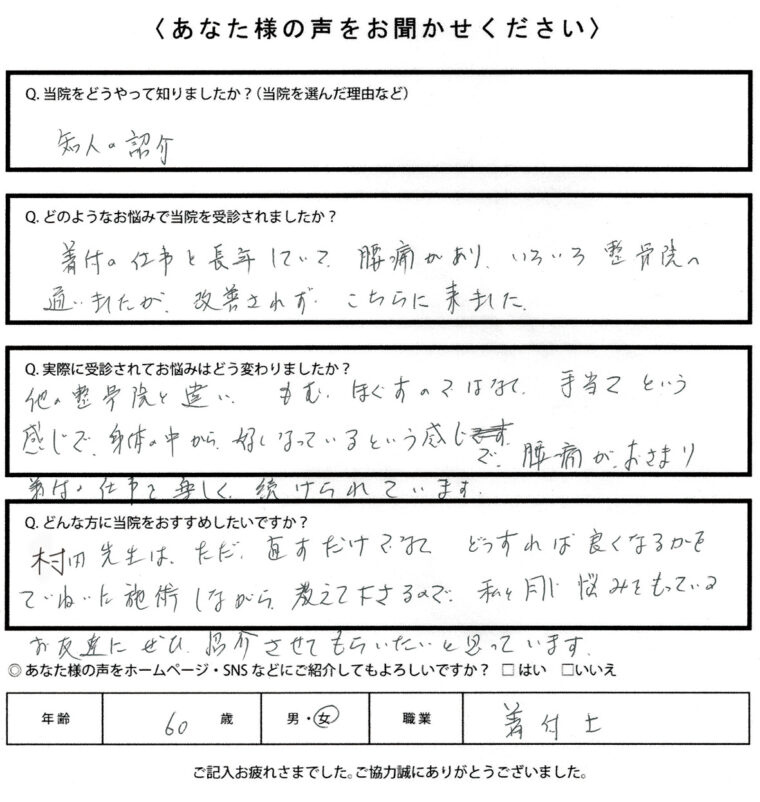 〈あなた様の声をお聞かせください〉
Q. 当院をどうやって知りましたか？（当院を選んだ理由など）
知人の認介
Q. どのようなお悩みで当院を受診されましたか？
着付の仕事を長年していて、腰痛があり、いろいろ整骨院へ
通いましたが、改善されず、こちらに来ました。
Q. 実際に受診されてお悩みはどう変わりましたか？
他の整骨院と違い、もむ、ほぐすのではなくて、手当てという
感じで、身体の中から、好くなっているという感じで、腰痛が、おさまり
着付の仕事を楽しく、続けられています。
Q. どんな方に当院をおすすめしたいですか？
村田先生は、ただ、直すだけでなくて どうすれば良くなるかを
ていねいに施術しながら、教えて下さるので、私と同じ悩みをもっている
お友達にぜひ、紹介させてもらいたいと思っています。
◎あなた様の声をホームページ・SNSなどにご紹介してもよろしいですか？ □はい □いいえ
年齢 60 歳 男・女 職業 着付士
ご記入お疲れさまでした。ご協力誠にありがとうございました。